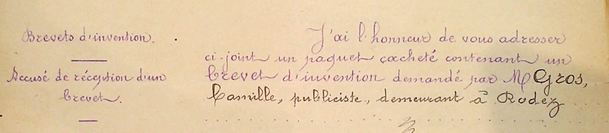 Brevets d'invention.
Accusé de réception d'un
brevet.
J'ai l'honneur de vous adresser
ci-joint un paquet cacheté contenant un
brevet d'invention demandé par M Gros,
Camille, publiciste, demeurant à Rodez